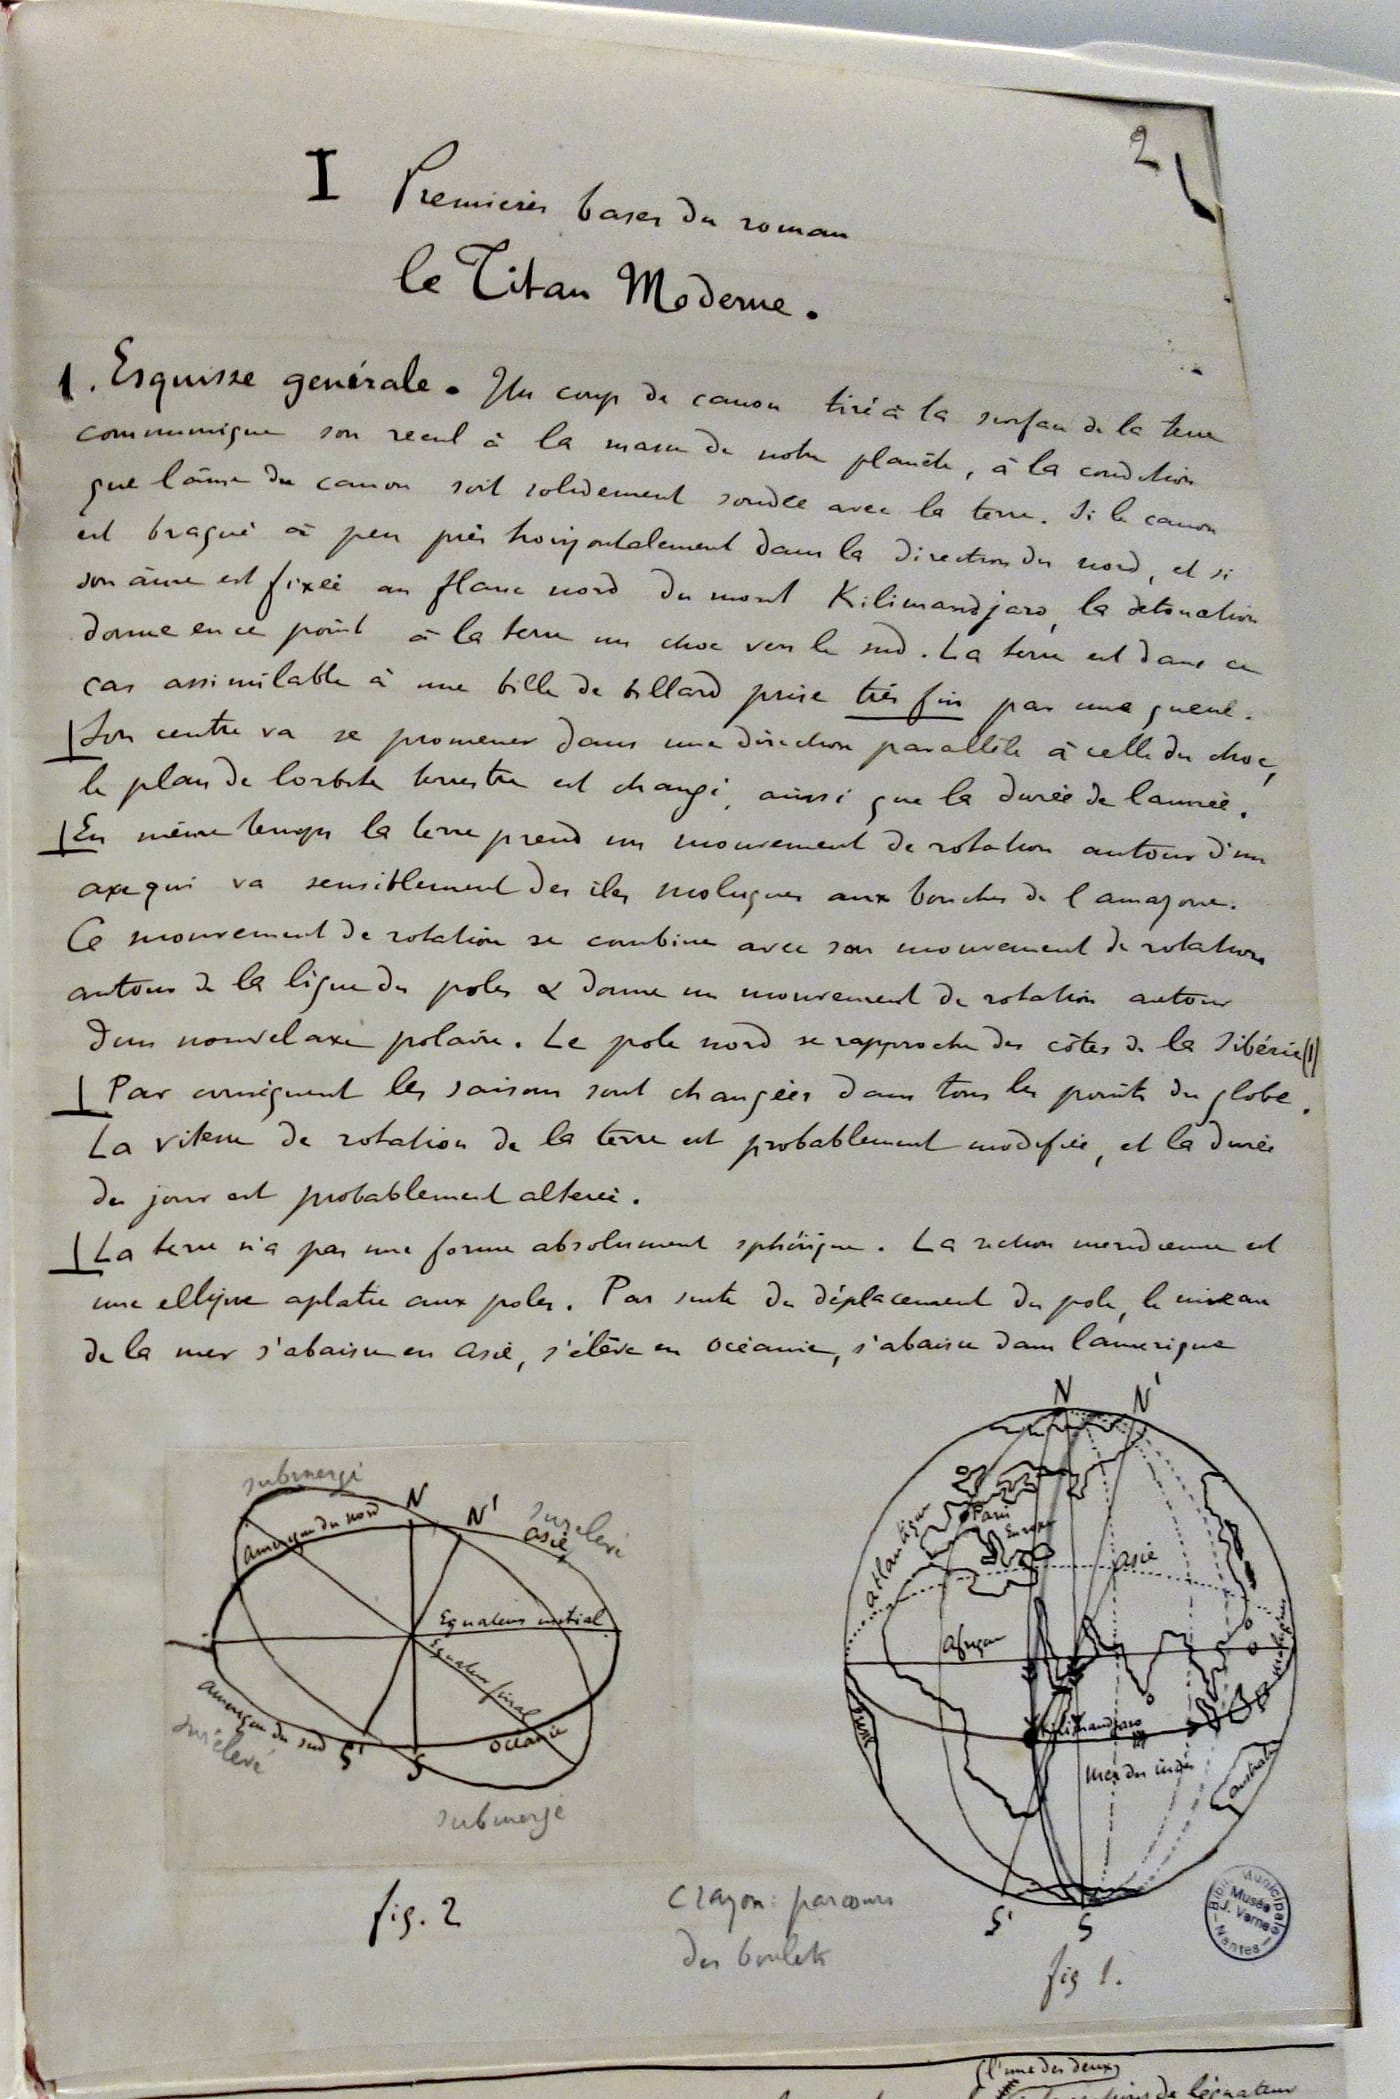 2
I Premières bases du roman
le Titan Moderne.
1. Esquisse générale. Un coup de canon tiré à la surface de la terre
communique son recul à la masse de notre planète, à la condition
que l'âme du canon soit solidement soudée avec la terre. Si le canon
est braqué à peu près horizontalement dans la direction du nord, et si
son âme est fixée au flanc nord du mont Kilimandjaro, la détonation
donne en ce point à la terre un choc vers le sud. La terre est dans ce
cas assimilable à une bille de billard prise très fin par une queue.
Son centre va se promener dans une direction parallèle à celle du choc,
le plan de l'orbite terrestre est changé, ainsi que la durée de l'année.
En même temps la terre prend un mouvement de rotation autour d'un
axe qui va sensiblement des îles moluques aux bouches de l'amazone.
Ce mouvement de rotation se combine avec son mouvement de rotation
autour de la ligne des poles & donne un mouvement de rotation autour
d'un nouvel axe polaire. Le pole nord se rapproche des côtes de la Sibérie (1)
Par conséquent les saisons sont changées dans tous les points du globe.
La vitesse de rotation de la terre est probablement modifiée, et la durée
du jour est probablement alterée.
La terre n'a pas une forme absolument sphérique. La section meridienne est
une ellipse aplatie aux poles. Par suite du déplacement du pole, le niveau
de la mer s'abaisse en asie, s'élève en océanie, s'abaisse dans l'amerique
submergé
N
N'
surélevé
asie
amerique du nord
Equateur initial
Equateur final
amerique du sud
surélevé
S'
S
océanie
submergé
fig. 2
N
N'
atlantique
Paris
Europe
asie
afrique
moluques
Kilimandjaro
mer des indes
australie
S'
S
fig 1.
crayon: parcours
des boulets
Bibli. Municipale
Musée
J. Verne
Nantes
(l'une des deux)
de l'équateur